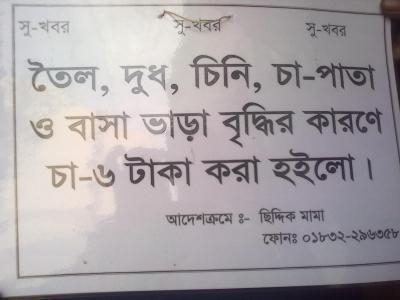 সু-খবর সু-খবর সু-খবর
তৈল, দুধ, চিনি, চা-পাতা
ও বাসা ভাড়া বৃদ্ধির কারণে
চা-৬ টাকা করা হইলো।
আদেশক্রমে ঃ- ছিদ্দিক মামা
ফোনঃ ০১৮৩২-২৯৬৩৫৮